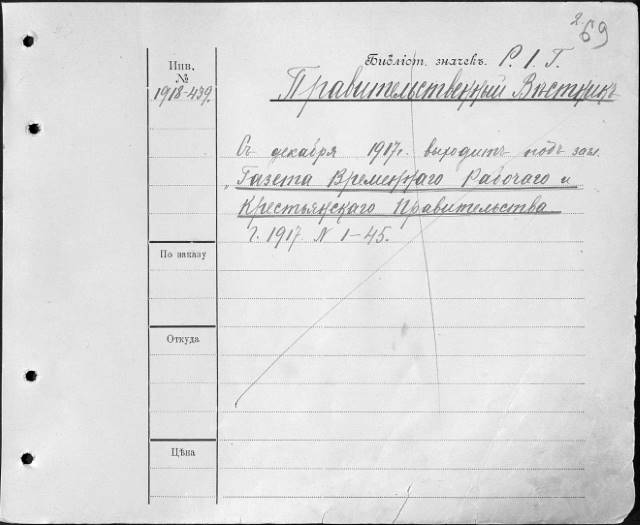 2.
69
Библіот. значекъ. Р. І. Г.
Инв.
№
1918-439.
Правительственный Вѣстникъ
Съ декабря 1917 г. выходитъ подъ загл.
„Газета Временнаго Рабочаго и
Крестьянскаго Правительства
Г. 1917 N 1-45.
По заказу
Откуда
Цѣна